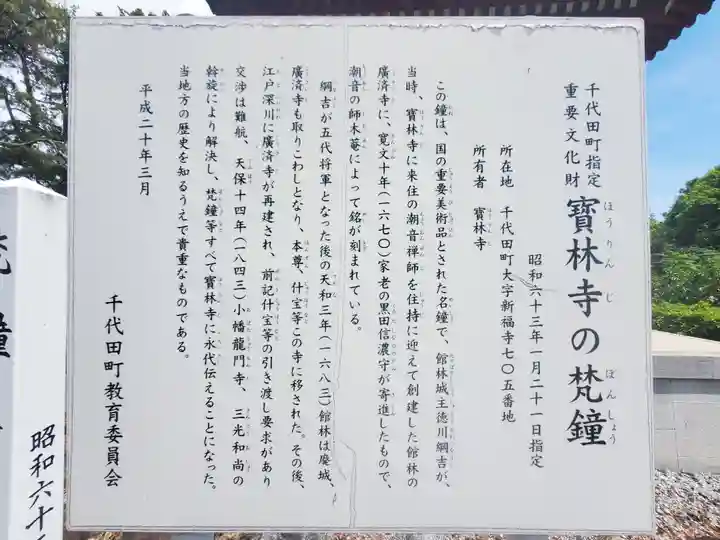 千代田町指定
重要文化財
寶林寺の梵鐘
ほうりんじ
ぼんしょう
昭和六十三年一月二十一日指定
所在地 千代田町大字新福寺七〇五番地
所有者 寶林寺
この鐘は、国の重要美術品とされた名鐘で、館林城主徳川綱吉が、
当時、寶林寺に来住の潮音禅師を住持に迎えて創建した館林の
廣済寺に、寛文十年(一六七〇)家老の黒田信濃守が寄進したもので、
潮音の師木菴によって銘が刻まれている。
綱吉が五代将軍となった後の天和三年(一六八三)館林は廃城、
廣済寺も取りこわしとなり、本尊、什宝等この寺に移された。その後、
江戸深川に廣済寺が再建され、前記什宝等の引き渡し要求があり
交渉は難航、天保十四年(一八四三)小幡龍門寺、三光和尚の
斡旋により解決し、梵鐘等すべて寶林寺に永代伝えることになった。
当地方の歴史を知るうえで貴重なものである。
平成二十年三月
千代田町教育委員会
梵鐘
昭和六十